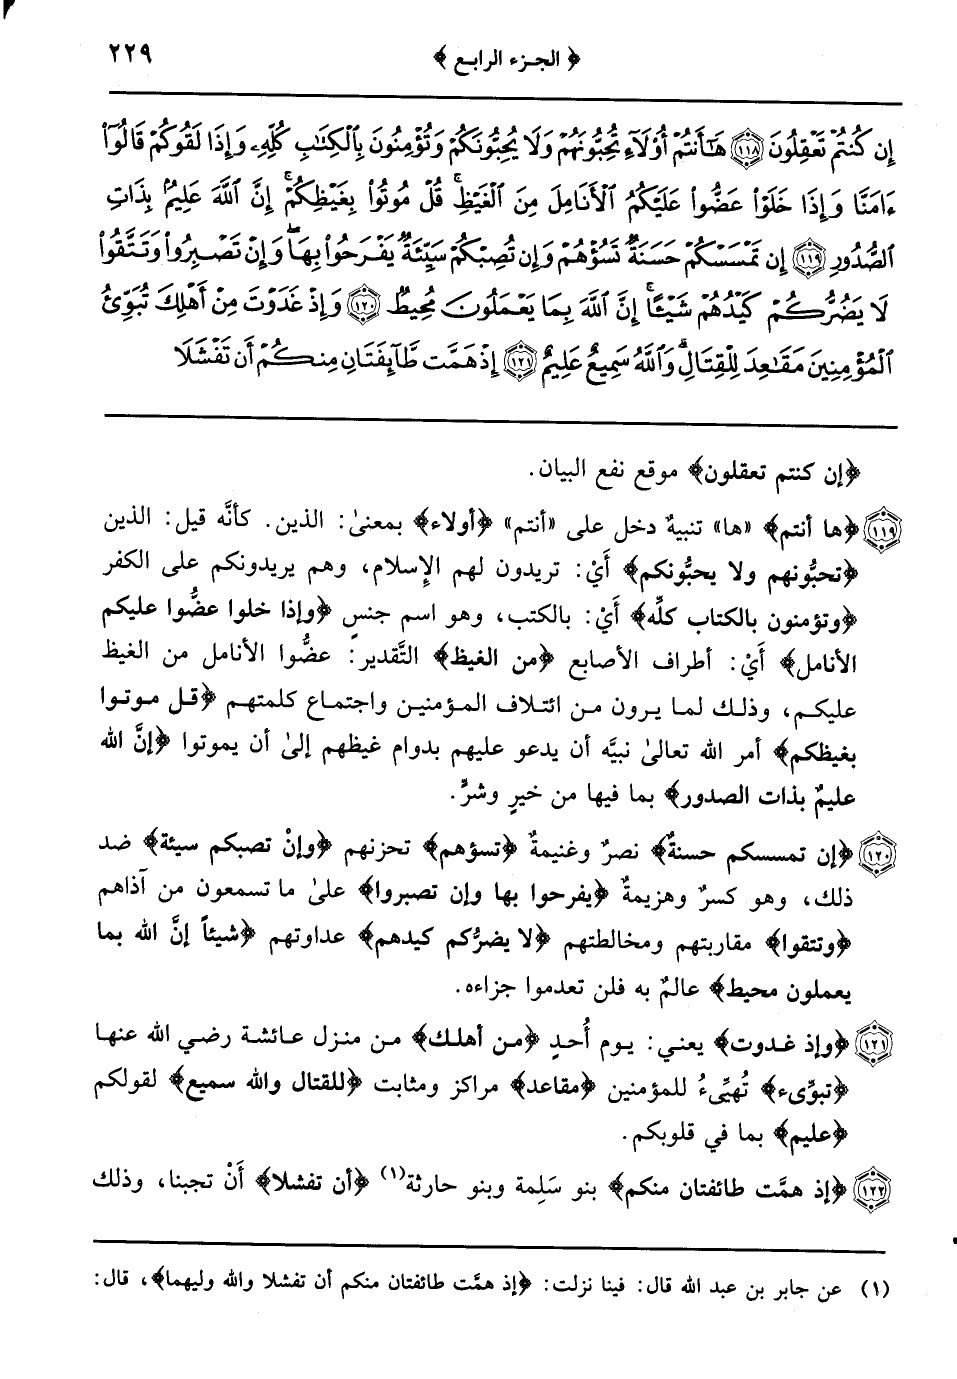 ﴿ الجزء الرابع ﴾ ٢٢٩
إِن كُنتُمْ تَعْقِلُونَ ١١٨ هَٰٓأَنتُمْ أُو۟لَآءِ تُحِبُّونَهُمْ وَلَا يُحِبُّونَكُمْ وَتُؤْمِنُونَ بِٱلْكِتَٰبِ كُلِّهِۦ وَإِذَا لَقُوكُمْ قَالُوٓا۟
ءَامَنَّا وَإِذَا خَلَوْا۟ عَضُّوا۟ عَلَيْكُمُ ٱلْأَنَامِلَ مِنَ ٱلْغَيْظِ ۚ قُلْ مُوتُوا۟ بِغَيْظِكُمْ ۗ إِنَّ ٱللَّهَ عَلِيمٌۢ بِذَاتِ
ٱلصُّدُورِ ١١٩ إِن تَمْسَسْكُمْ حَسَنَةٌ تَسُؤْهُمْ وَإِن تُصِبْكُمْ سَيِّئَةٌ يَفْرَحُوا۟ بِهَا ۖ وَإِن تَصْبِرُوا۟ وَتَتَّقُوا۟
لَا يَضُرُّكُمْ كَيْدُهُمْ شَيْـًٔا ۗ إِنَّ ٱللَّهَ بِمَا يَعْمَلُونَ مُحِيطٌ ١٢٠ وَإِذْ غَدَوْتَ مِنْ أَهْلِكَ تُبَوِّئُ
ٱلْمُؤْمِنِينَ مَقَٰعِدَ لِلْقِتَالِ ۗ وَٱللَّهُ سَمِيعٌ عَلِيمٌ ١٢١ إِذْ هَمَّت طَّآئِفَتَانِ مِنكُمْ أَن تَفْشَلَا
﴿إن كنتم تعقلون﴾ موقع نفع البيان.
١١٩ ﴿ها أنتم﴾ «ها» تنبيهٌ دخل على «أنتم» ﴿أولاء﴾ بمعنىٰ: الذين. كأنَّه قيل: الذين
﴿تحبُّونهم ولا يحبُّونكم﴾ أَيْ: تريدون لهم الإِسلام، وهم يريدونكم على الكفر
﴿وتؤمنون بالكتاب كلِّه﴾ أَيْ: بالكتب، وهو اسم جنسٍ ﴿وإذا خلوا عضُّوا عليكم
الأنامل﴾ أَيْ: أطراف الأصابع ﴿من الغيظ﴾ التَّقدير: عضُّوا الأنامل من الغيظ
عليكم، وذلك لما يرون من ائتلاف المؤمنين واجتماع كلمتهم ﴿قل موتوا
بغيظكم﴾ أمر الله تعالىٰ نبيَّه أن يدعو عليهم بدوام غيظهم إلىٰ أن يموتوا ﴿إنَّ الله
عليمٌ بذات الصدور﴾ بما فيها من خيرٍ وشرٍّ.
١٢٠ ﴿إن تمسسكم حسنةٌ﴾ نصرٌ وغنيمةٌ ﴿تسؤهم﴾ تحزنهم ﴿وإنْ تصبكم سيئة﴾ ضد
ذلك، وهو كسرٌ وهزيمةٌ ﴿يفرحوا بها وإن تصبروا﴾ علىٰ ما تسمعون من آذاهم
﴿وتتقوا﴾ مقاربتهم ومخالطتهم ﴿لا يضرُّكم كيدهم﴾ عداوتهم ﴿شيئاً إنَّ الله بما
يعملون محيط﴾ عالمٌ به فلن تعدموا جزاءه.
١٢١ ﴿وإذ غدوت﴾ يعني: يوم أُحدٍ ﴿من أهلك﴾ من منزل عائشة رضي الله عنها
﴿تبوِّىء﴾ تُهيِّىءُ للمؤمنين ﴿مقاعد﴾ مراكز ومثابت ﴿للقتال والله سميع﴾ لقولكم
﴿عليم﴾ بما في قلوبكم.
١٢٢ ﴿إذ همَّت طائفتان منكم﴾ بنو سَلِمة وبنو حارثة(١) ﴿أن تفشلا﴾ أَنْ تجبنا، وذلك
(١) عن جابر بن عبد الله قال: فينا نزلت: ﴿إذ همَّت طائفتان منكم أن تفشلا والله وليهما﴾، قال: